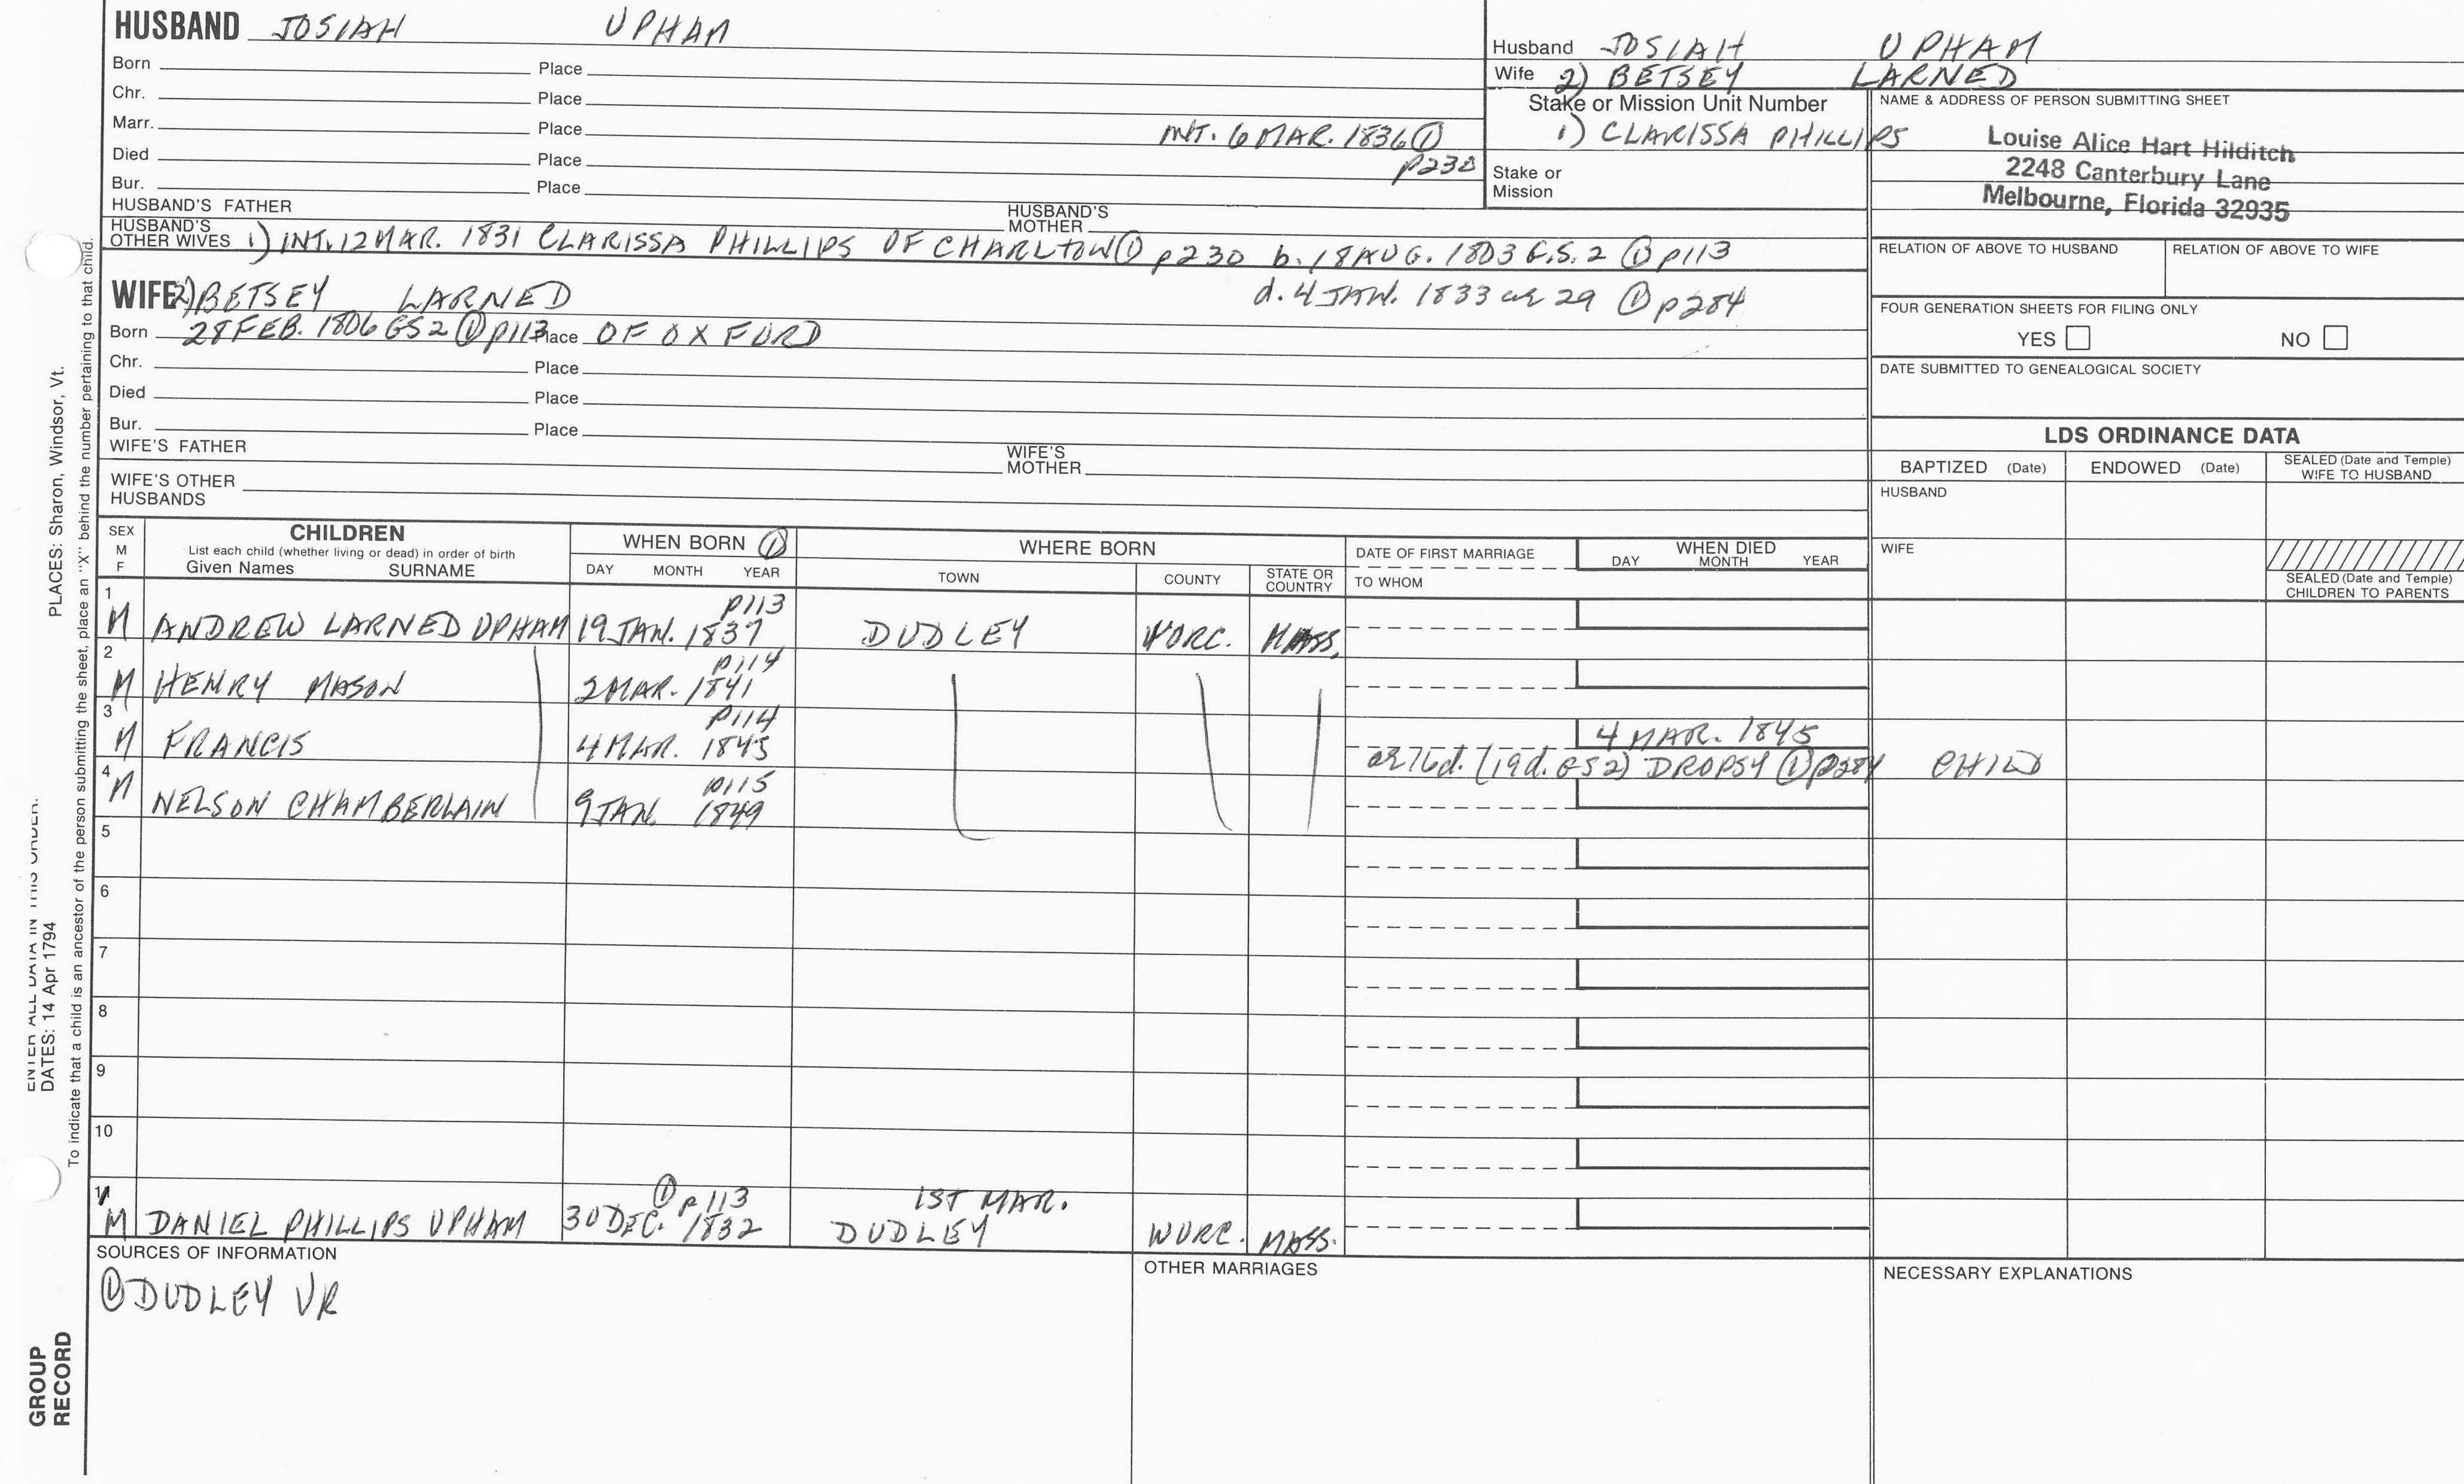 HUSBAND JOSIAH UPHAM
Born Place
Chr. Place
Marr. Place INT. 6 MAR. 1836 ①
Died Place p230
Bur. Place
HUSBAND'S FATHER HUSBAND'S MOTHER
HUSBAND'S OTHER WIVES 1) INT. 12 MAR. 1831 CLARISSA PHILLIPS OF CHARLTON ① p230 b. 18 AUG. 1803 G.S. 2 ① p113
d. 4 JAN. 1833 ae 29 ① p284
WIFE 2) BETSEY LARNED
Born 28 FEB. 1806 GS2 ① p113 Place OF OXFORD
Chr. Place
Died Place
Bur. Place
WIFE'S FATHER WIFE'S MOTHER
WIFE'S OTHER HUSBANDS
Husband JOSIAH UPHAM
Wife 2) BETSEY LARNED
Stake or Mission Unit Number
1) CLARISSA PHILLIPS
Stake or
Mission
NAME & ADDRESS OF PERSON SUBMITTING SHEET
Louise Alice Hart Hilditch
2248 Canterbury Lane
Melbourne, Florida 32935
RELATION OF ABOVE TO HUSBAND RELATION OF ABOVE TO WIFE
FOUR GENERATION SHEETS FOR FILING ONLY
YES NO
DATE SUBMITTED TO GENEALOGICAL SOCIETY
LDS ORDINANCE DATA
BAPTIZED (Date) ENDOWED (Date) SEALED (Date and Temple) WIFE TO HUSBAND
HUSBAND
WIFE
SEALED (Date and Temple)
CHILDREN TO PARENTS
SEX M F
CHILDREN
List each child (whether living or dead) in order of birth
Given Names SURNAME
WHEN BORN ①
DAY MONTH YEAR
WHERE BORN
TOWN COUNTY STATE OR COUNTRY
DATE OF FIRST MARRIAGE
TO WHOM
WHEN DIED
DAY MONTH YEAR
1 p113
M ANDREW LARNED UPHAM 19 JAN. 1837 DUDLEY WORC. MASS.
2 p114
M HENRY MASON 2 MAR. 1841
3 p114
M FRANCIS 4 MAR. 1845 4 MAR. 1845
ae 16d. (19d. GS2) DROPSY ① p284 CHILD
4 p115
M NELSON CHAMBERLAIN 9 JAN. 1849
5
6
7
8
9
10
11 ① p113 1ST MAR.
M DANIEL PHILLIPS UPHAM 30 DEC. 1832 DUDLEY WORC. MASS.
SOURCES OF INFORMATION
① DUDLEY VR
OTHER MARRIAGES
NECESSARY EXPLANATIONS
PLACES: Sharon, Windsor, Vt.
To indicate that a child is an ancestor of the person submitting the sheet, place an "X" behind the number pertaining to that child.
ENTER ALL DATA IN THIS ORDER:
DATES: 14 Apr 1794
GROUP
RECORD